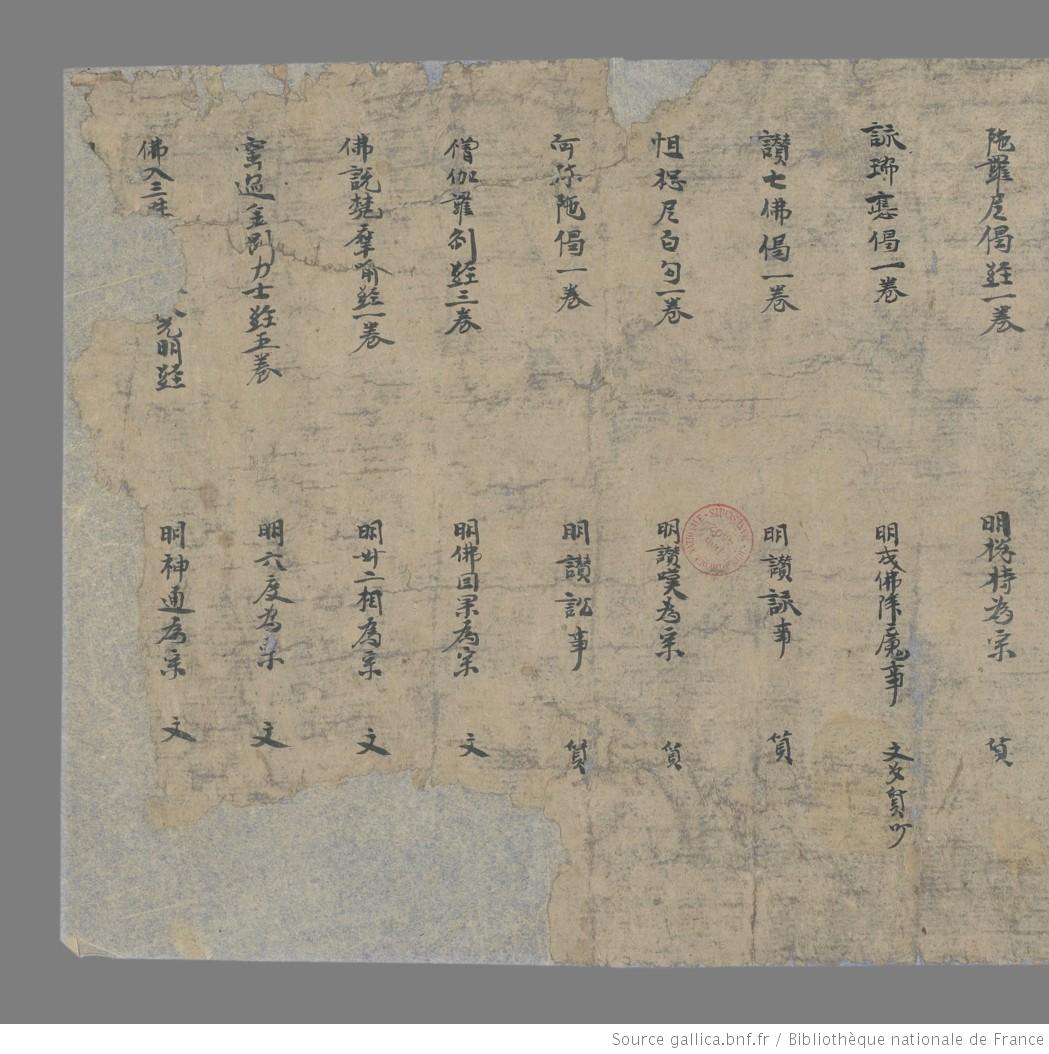 陁羅尼偈經一卷 明揔持為宗 質
詠瑞應偈一卷 明成佛降魔事 文多質少
讃七佛偈一卷 明讃詠事 質
怛惒尼百句一卷 明讃実為宗 質
阿弥陁偈一卷 明讃説事 質
僧伽羅剎經三卷 明佛因果為宗 文
佛說梵摩喻經一卷 明卅二相為宗 文
密迹金剛力士經五卷 明六度為宗 文
佛入三昧 光明經 明神通為宗 文
Source gallica.bnf.fr / Bibliothèque nationale de France